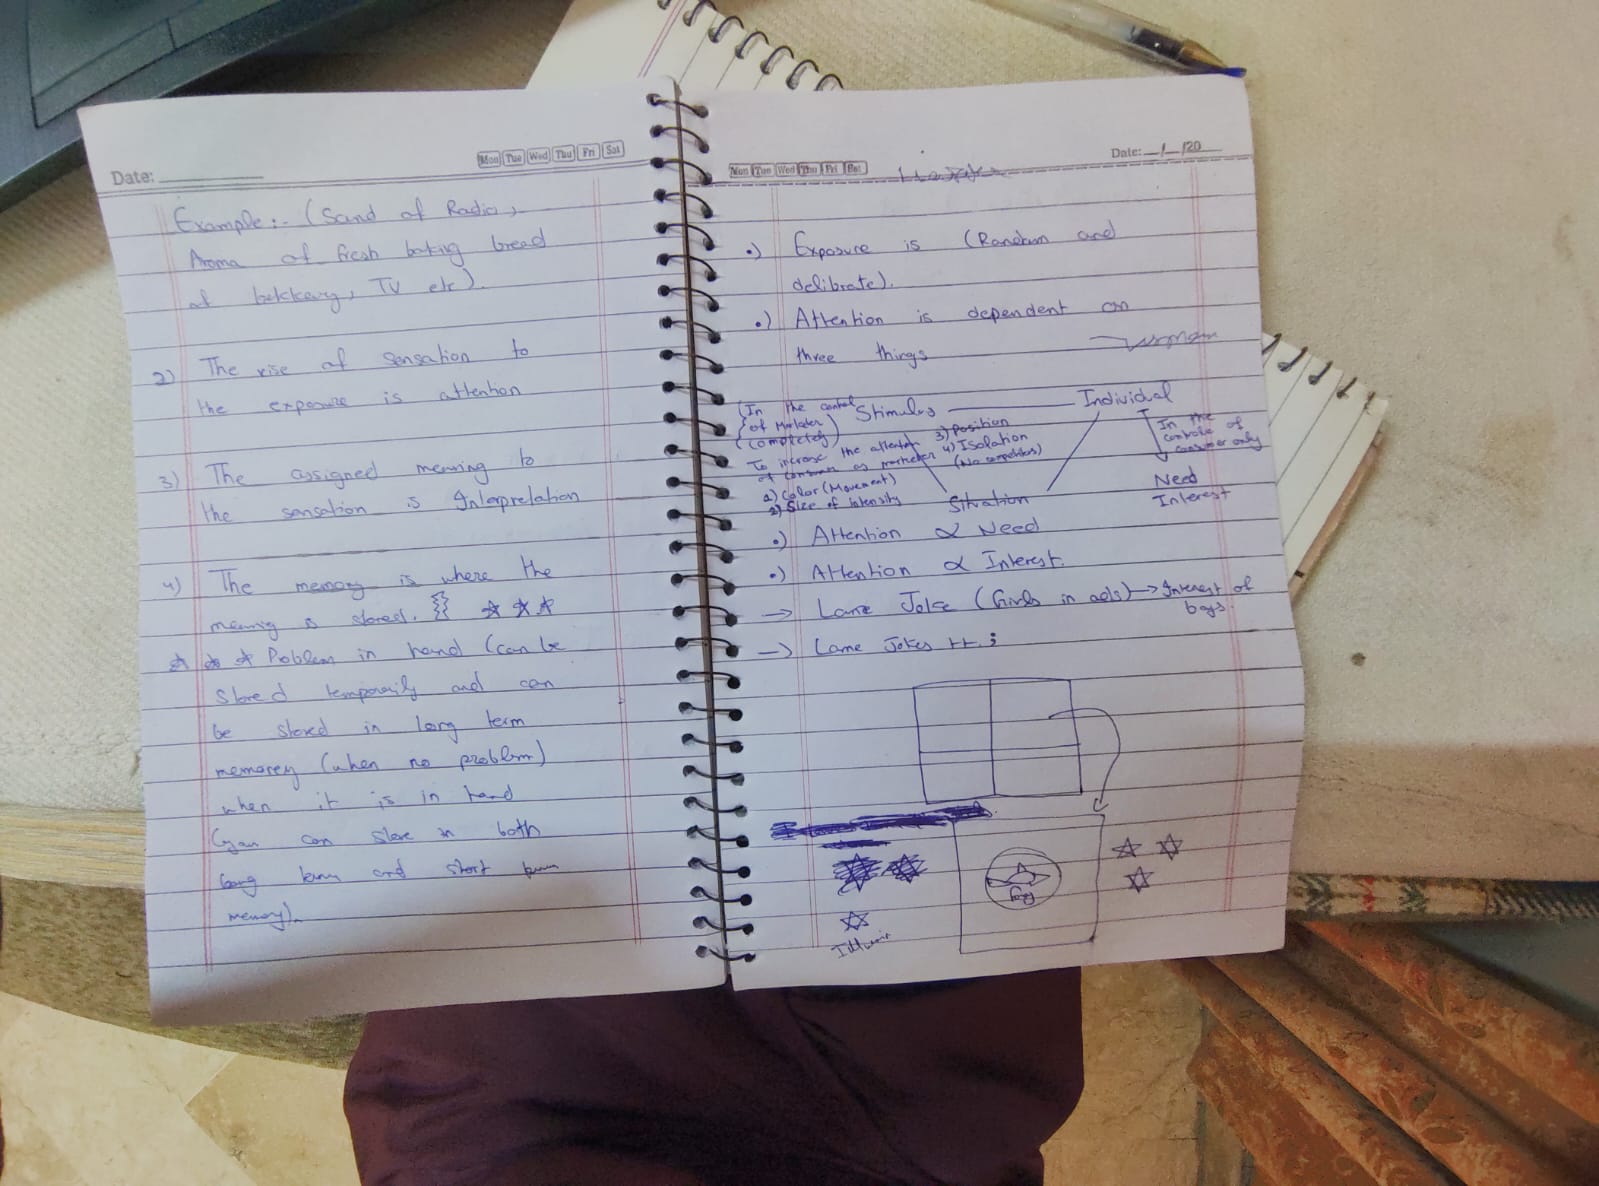 Date:
Mon Tue Wed Thu Fri Sat
Example:- (Sand of Radio,
Aroma of fresh baking bread
at bekkery, TV etc).
2) The rise of sensation to
the exposure is attention
3) The assigned meaning to
the sensation is Interpretation
4) The memory is where the
meaning is stored.
Problem in hand (can be
stored temporaily and can
be stored in long term
memorey (when no problem)
when it is in hand
(you can store in both
long term and short term
memory).
Mon Tue Wed Thu Fri Sat
Date: / /20
•) Exposure is (Random and
delibrate).
•) Attention is dependent on
three things
Stimulus
Individual
Situation
(In the control
of Marketer
completely)
To increase the attention
of consumer as marketer
1) Color (Movement)
2) Size of intensity
3) Position
4) Isolation
(No competitors)
In the
controle of
consumer only
Need
Interest
•) Attention ∝ Need
•) Attention ∝ Interest.
→ Lame Joke (Girls in ads) → Interest of
boys.
→ Lame Jokes ++ ;